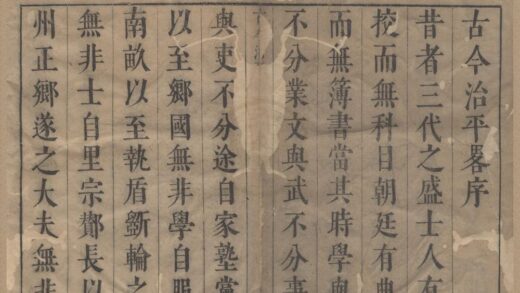 古今治平畧序
昔者三代之盛士人有
挍而無科目朝廷有典
而無簿書當其時學與
不分業文與武不分事
與吏不分途自家塾黨
以至鄉國無非學自服
南畝以至執盾斵輪之
無非士自里宗酇長以
州正鄉遂之大夫無非